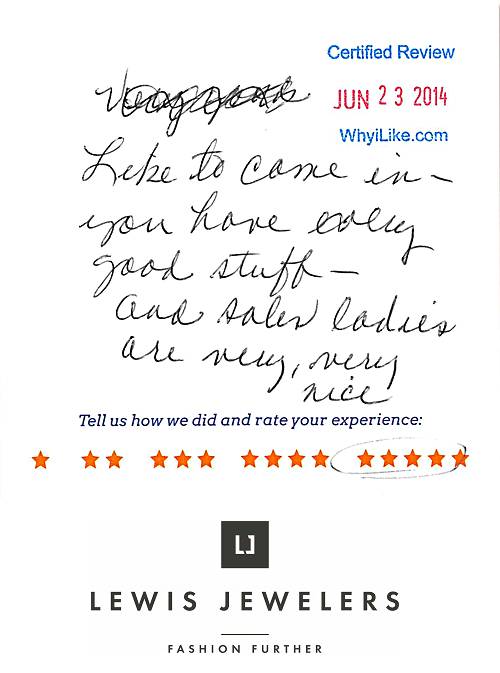 Certified Review
JUN 23 2014
WhyiLike.com
Like to come in –
you have every
good stuff –
and sales ladies
are very, very
nice
Tell us how we did and rate your experience:
LJ
LEWIS JEWELERS
FASHION FURTHER